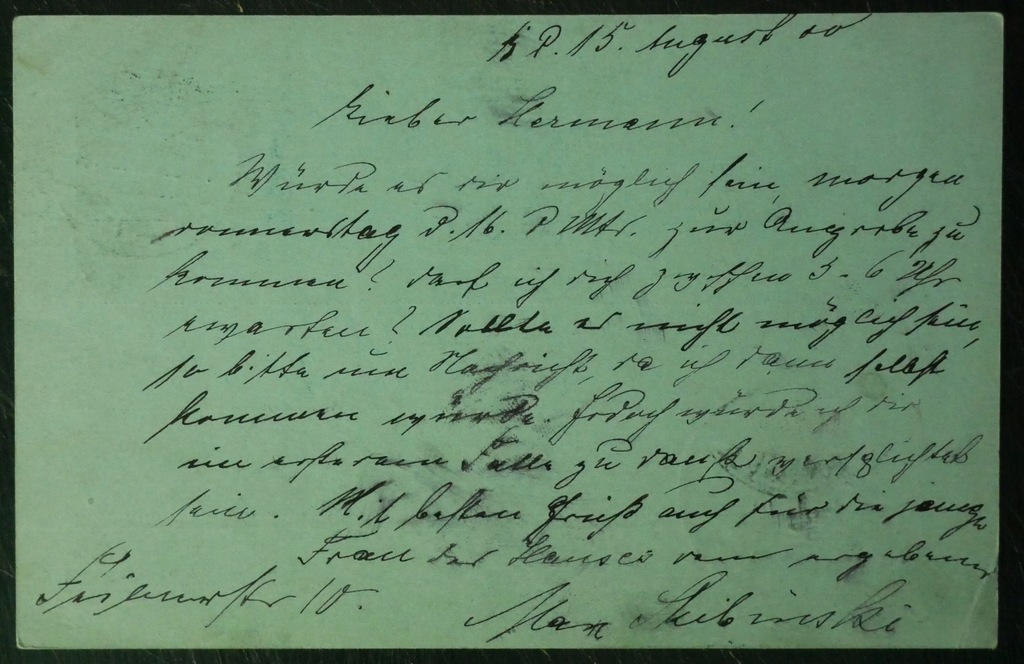 d. 15. August 00
Lieber Hermann!
Würde es dir möglich sein, morgen
Donnerstag d. 16. d Mts. zur Anprobe zu
kommen? Darf ich dich zwischen 5-6 Uhr
erwarten? Sollte es nicht möglich sein,
so bitte um Nachricht, da ich dann selbst
kommen würde. Jedoch würde ich dir
im ersteren Falle zu Dank verpflichtet
sein. Mit besten Gruß auch für die junge
Frau des Hauses dein ergebener
10. Max